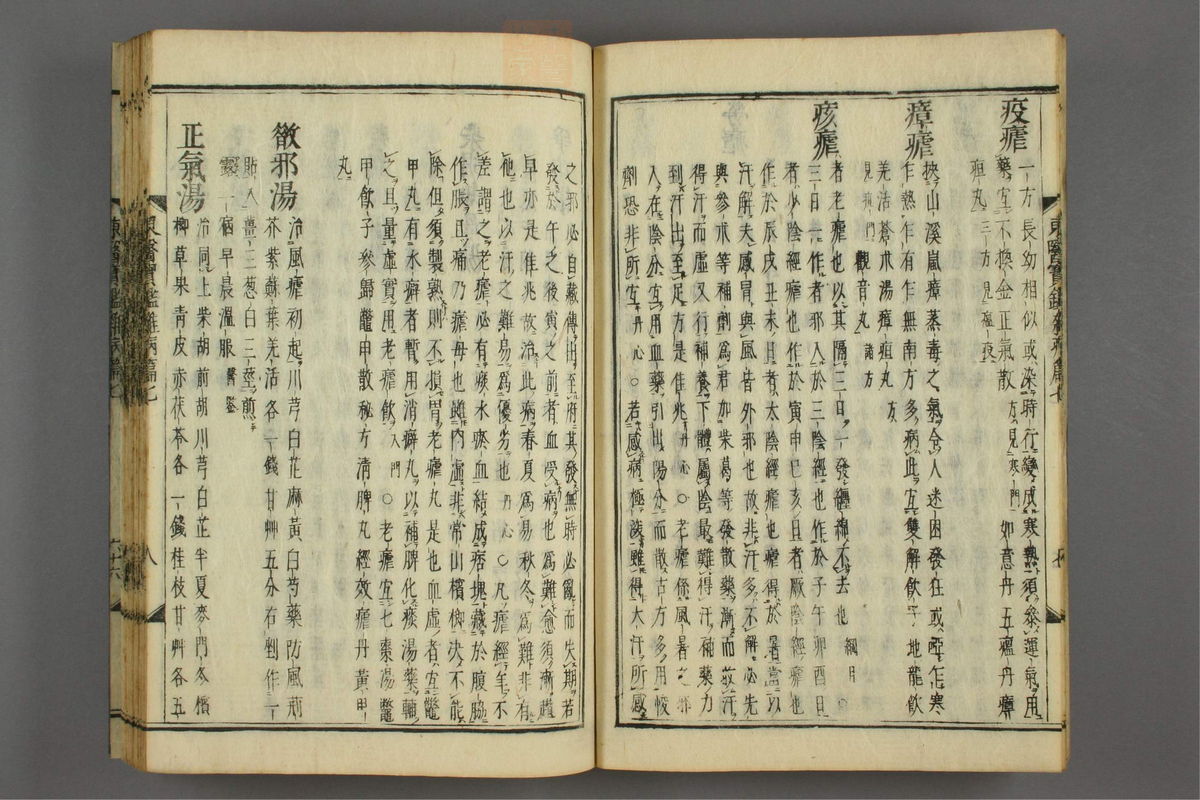 疫瘧
一方長幼相似或染時行變成寒熱須參運氣用
藥宜不換金正氣散方見寒門如意丹五瘟丹瘴
疸丸三方見瘟疫
瘴瘧
挾山溪嵐瘴蒸毒之氣令人迷困發狂或啞乍寒
乍熱乍有乍無南方多病此宜雙解飲子地龍飲
羌活蒼朮湯瘴疸丸方
見疸門觀音丸諸方
痎瘧
者老瘧也以其隔三日一發纏綿不去也綱目○
三日一作者邪入於三陰經也作於子午卯酉日
者少陰經瘧也作於寅申巳亥日者厥陰經瘧也
作於辰戌丑未日者太陰經瘧也瘧得於暑當以
汗解夫感冒與風皆外邪也故非汗多不解必先
與參朮等補劑爲君加柴葛等發散藥漸而收汗
得汗而虛又行補養下體屬陰最難得汗補藥力
到汗出至足方是佳兆丹心○老瘧係風暑之邪
入在陰分宜用血藥引出陽分而散古方多用峻
劑恐非所宜丹心○若感病極深雖得大汗所感
之邪必自藏傳出至府其發無時必亂而失期若
發於午之後寅之前者血受病也爲難愈須漸趲
早亦是佳兆故治此病春夏爲易秋冬爲難非有
他也以汗之難易爲優劣也丹心○凡瘧經年不
差謂之老瘧必有痰水瘀血結成痞塊藏於腹脇
作脹且痛乃瘧母也雖內虛非常山檳榔決不能
除但須製熟則不損胃老瘧丸是也血虛者宜鱉
甲丸有水癖者暫用消癖丸以補脾化痰湯藥輔
之且量虛實用老瘧飲入門○老瘧宜七棗湯鱉
甲飲子參歸鱉甲散秘方清脾丸經效瘧丹黃甲
丸
散邪湯
治風瘧初起川芎白芷麻黃白芍藥防風荊
芥紫蘇葉羌活各一錢甘艸五分右剉作一
貼入薑三葱白三莖煎
露一宿早晨溫服醫鑑
正氣湯
治同上柴胡前胡川芎白芷半夏麥門冬檳
榔草果青皮赤茯苓各一錢桂枝甘艸各五
東醫寶鑑雜病篇七
東醫寶鑑雜病篇七
八